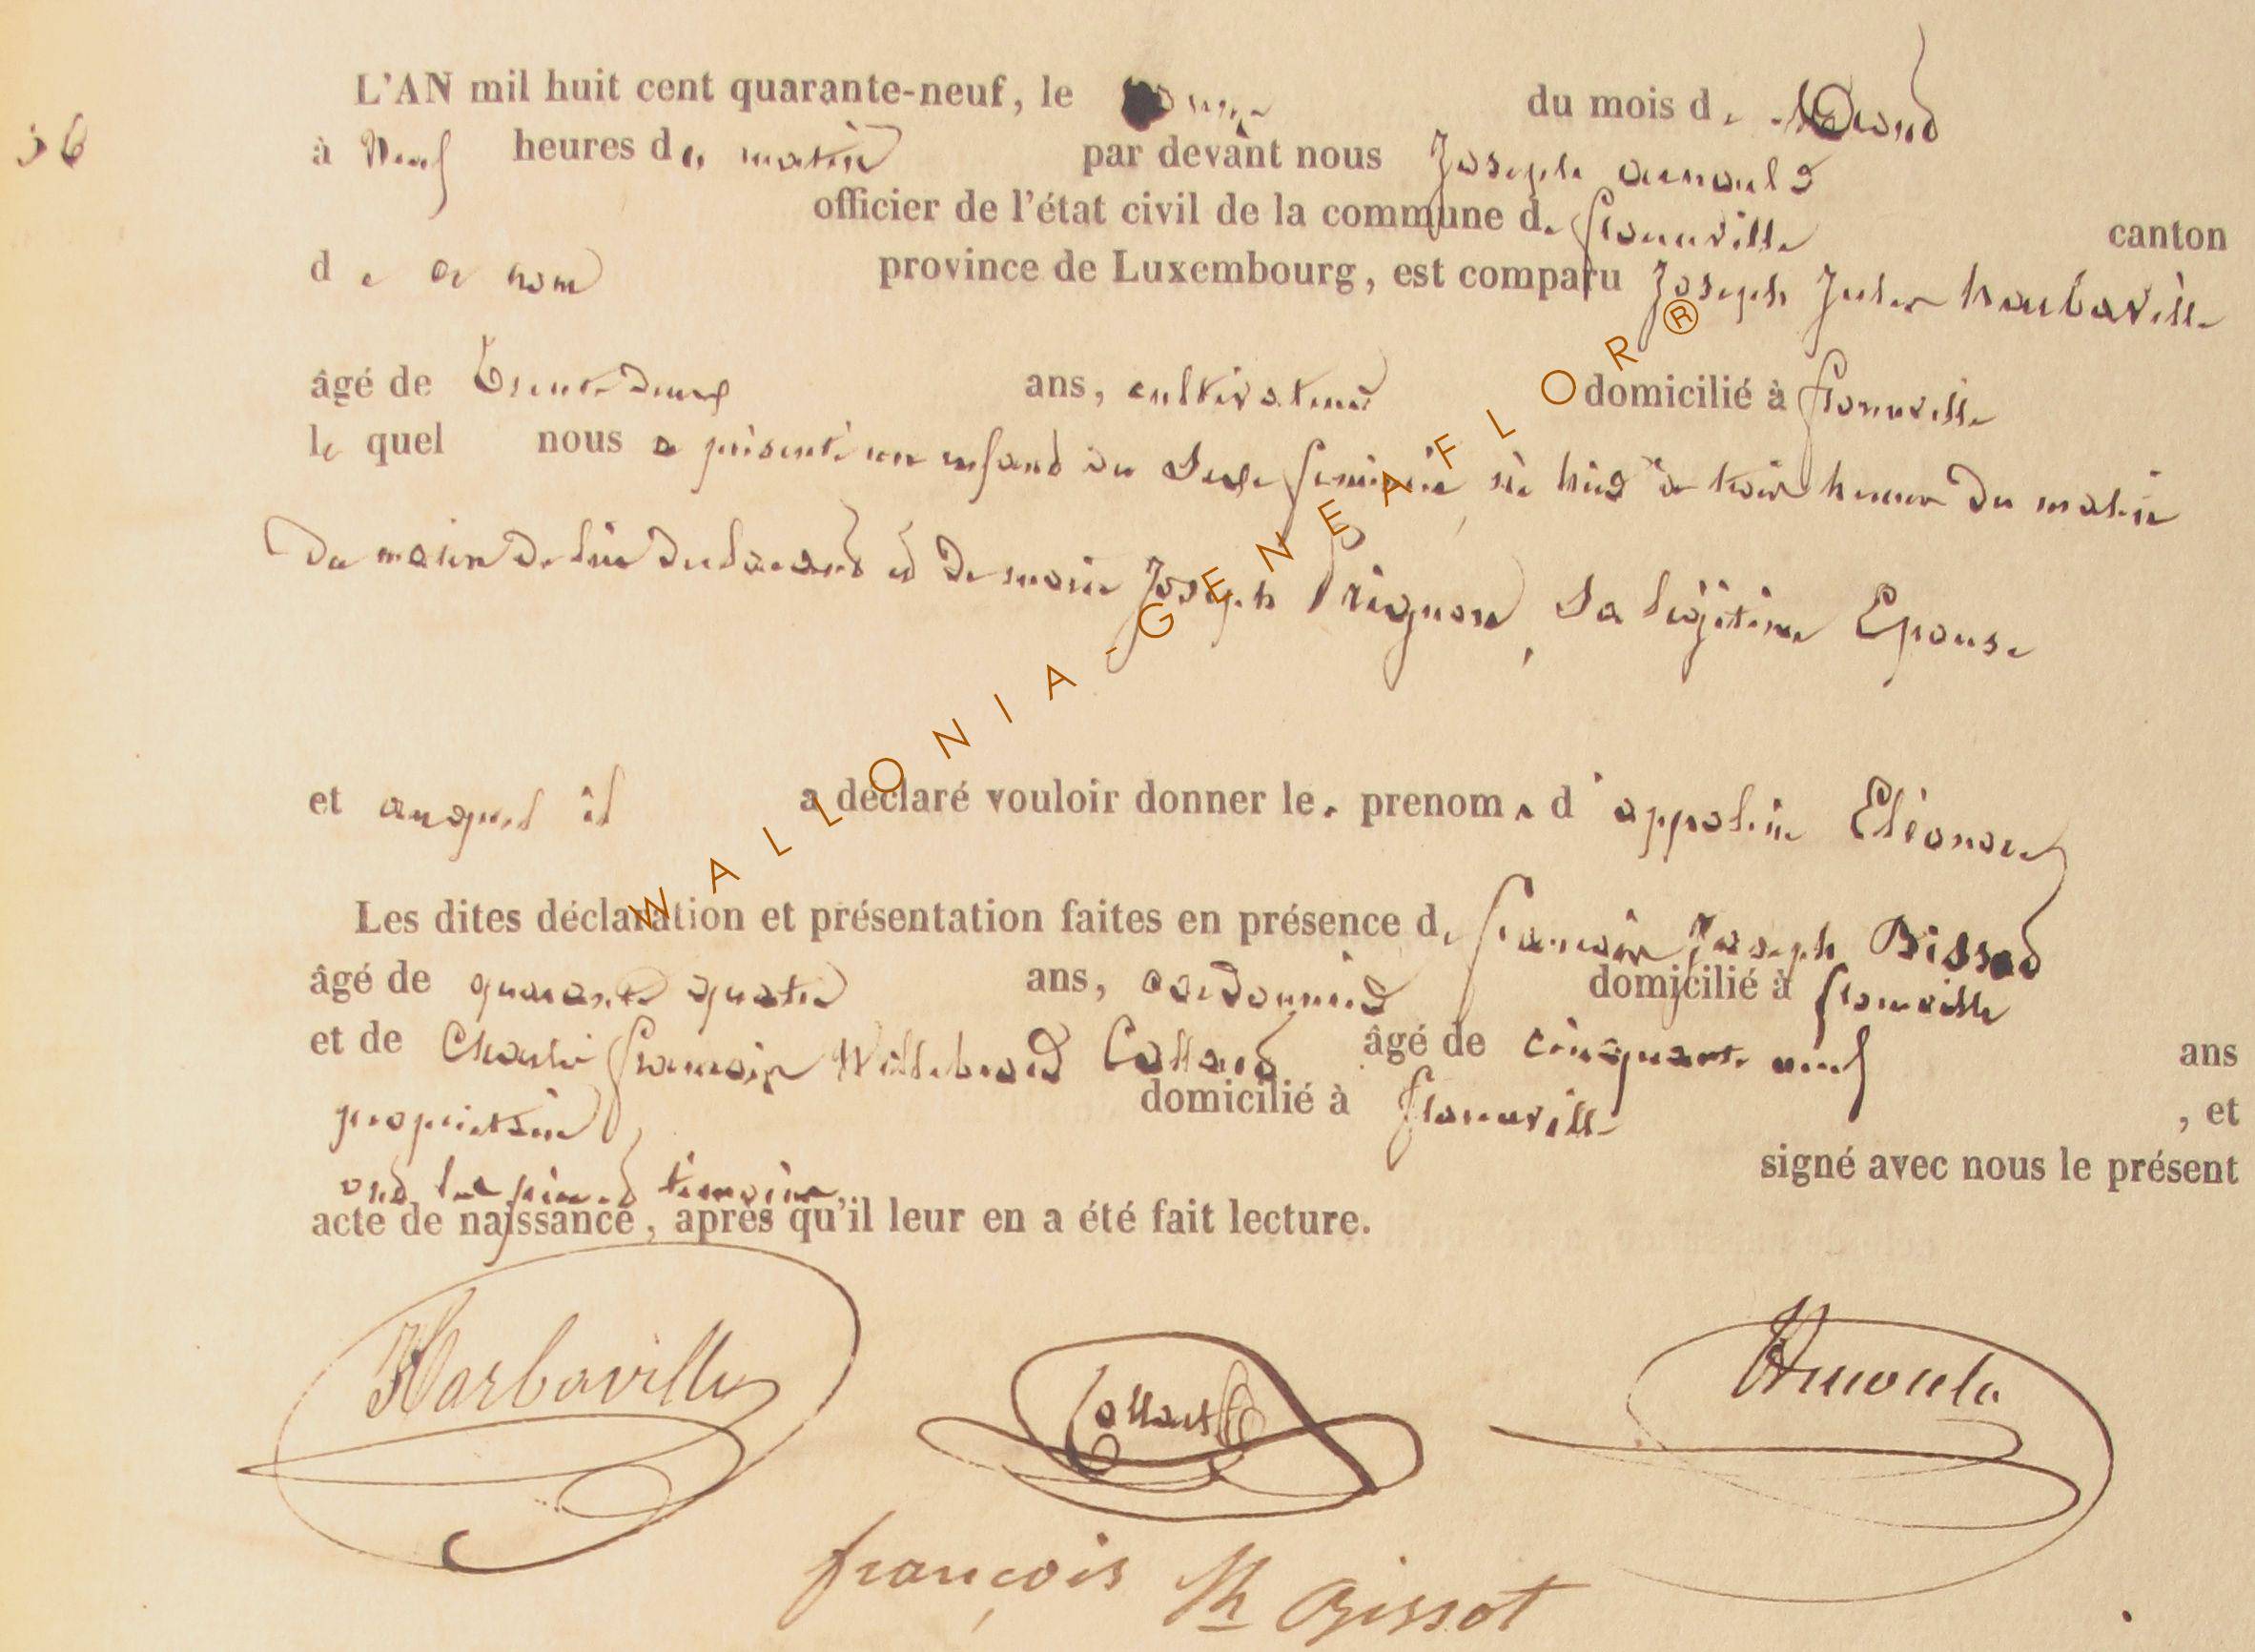 L'AN mil huit cent quarante-neuf, le du mois d
36
à Neuf heures du matin par devant nous Joseph arnould
officier de l'état civil de la commune de florenville canton
de ce nom province de Luxembourg, est comparu Joseph Jules harbaville
âgé de trente deux ans, cultivateur domicilié à florenville
le quel nous a présenté un enfant du sexe feminin né hier à trois heures du matin
de lui declarant et de marie Joseph Prignon, sa légitime Epouse
et auquel il a déclaré vouloir donner les prenoms d'appoline Eléonore
Les dites déclaration et présentation faites en présence de francois Joseph Bissot
âgé de quarante quatre ans, cordonnier domicilié à florenville
et de Charles francois Willebrord Collard âgé de cinquante neuf ans
propriétaire domicilié à florenville , et
ont les père et témoins signé avec nous le présent
acte de naissance, après qu'il leur en a été fait lecture.
Harbaville Collart Arnould
françois Jh Bissot
WALLONIA-GENEAFLOR®